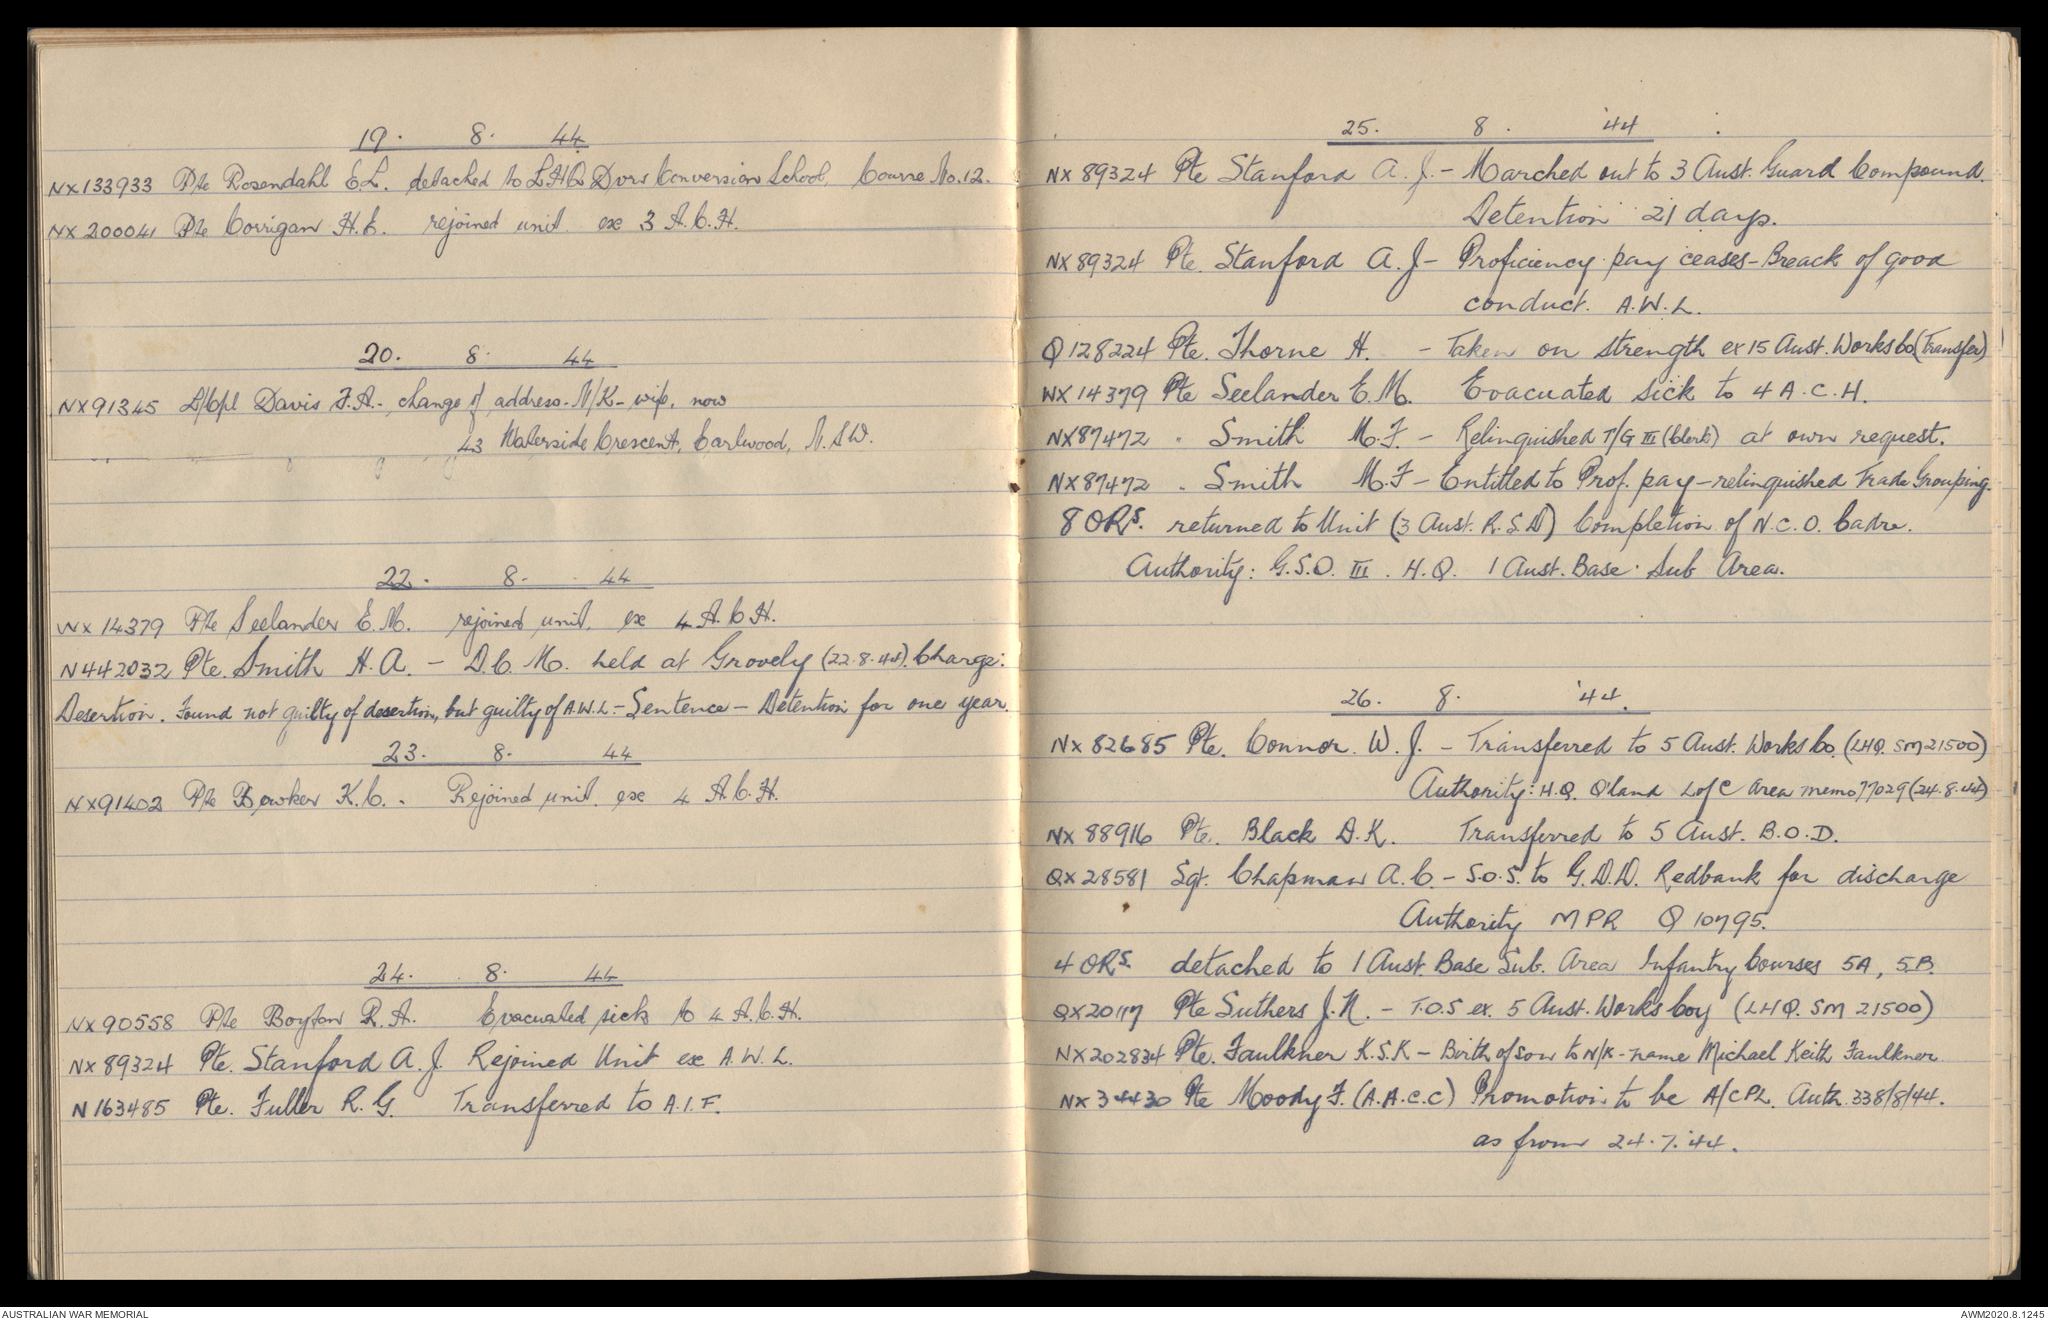 19. 8. 44
NX133933 Pte Rosendahl E.L. detached to L.H.Q Dvrs Conversion School, Course No.12.
NX200041 Pte Corrigan H.E. rejoined unit ex 3 A.C.H.
20. 8. 44
NX91345 L/Cpl Davis F.A. - change of address - N/K - wife, now
43 Waterside Crescent, Earlwood, N.S.W.
22. 8. 44
WX14379 Pte Seelander E.M. rejoined unit, ex 4 A.C.H.
N442032 Pte. Smith H.A. - D.C.M. held at Grovely (22.8.44). Charge:
Desertion. Found not guilty of desertion, but guilty of A.W.L. - Sentence - Detention for one year.
23. 8. 44
NX91402 Pte Bowker K.C. - Rejoined unit, ex 4 A.C.H.
24. 8. 44
NX90558 Pte Boyton R.A. Evacuated sick to 4 A.C.H.
NX89324 Pte. Stanford A.J. Rejoined Unit ex A.W.L.
N163485 Pte. Fuller R.G. Transferred to A.I.F.
25. 8. '44
NX89324 Pte Stanford A.J. - Marched out to 3 Aust. Guard Compound.
Detention 21 days.
NX89324 Pte. Stanford A.J - Proficiency pay ceases - Breach of good
conduct. A.W.L.
Q128224 Pte. Thorne H. - Taken on strength ex 15 Aust. Works Co (Transfer)
WX14379 Pte Seelander E.M. Evacuated sick to 4 A.C.H.
NX87472 " Smith M.F. - Relinquished T/G III (Clerk) at own request.
NX87472 " Smith M.F - Entitled to Prof. pay - relinquished Trade Grouping.
8 ORs. returned to Unit (3 Aust. R.S.D) Completion of N.C.O. Cadre.
Authority: G.S.O. III. H.Q. 1 Aust. Base Sub Area.
26. 8. '44.
NX82685 Pte. Connor W.J. - Transferred to 5 Aust. Works Co. (LHQ. SM21500)
Authority: H.Q. Q'land L of C Area memo 77029 (24.8.44)
NX88916 Pte. Black D.K. Transferred to 5 Aust. B.O.D.
QX28581 Sgt. Chapman A.C. - S.O.S. to G.D.D. Redbank for discharge
Authority MPR Q 10795.
4 ORs. detached to 1 Aust Base Sub. Area Infantry Courses 5A, 5B.
QX20117 Pte Suthers J.N. - T.O.S ex. 5 Aust. Works Coy (LHQ. SM 21500)
NX202834 Pte. Faulkner K.S.K - Birth of son to N/K - name Michael Keith Faulkner.
NX34430 Pte Moody F. (A.A.C.C) Promotion to be A/CPL. Auth. 338/8/44.
as from 24.7.44.
AUSTRALIAN WAR MEMORIAL
AWM2020.8.1245